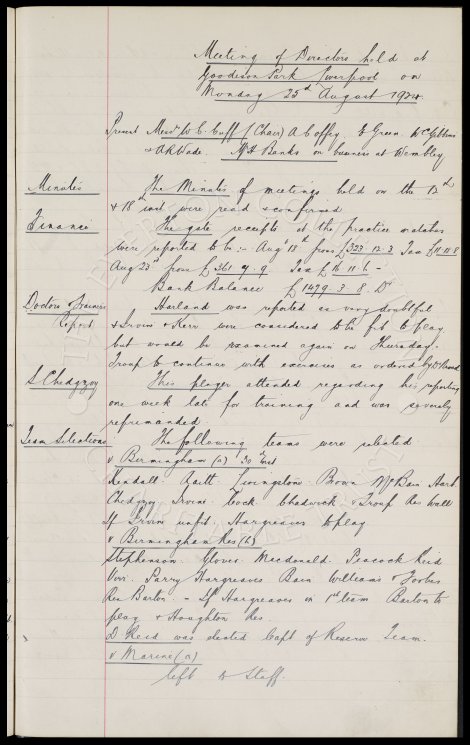 Meeting of Directors held at
Goodison Park Liverpool on
Monday 25th August 1924.
Present Messrs W. C. Cuff (Chair) A Coffey T. Green W C Gibbins
& A R Wade. Mr H Banks on business at Wembley
Minutes The Minutes of meetings held on the 12th
& 18th inst were read & confirmed
Finance The gate receipts at the practice matches
were reported to be:- Augt 18th from £323. 12. 3 Tax £
Aug 23rd from £361. 7. 9. Tax £16. 11. 6 -
Bank Balance £1479. 3. 8 Dr
Doctor & Trainers Harland was reported as very doubtful
Report & Irvine & Kerr were considered to be fit to play
but would be examined again on Thursday.
Troup to continue with exercises as ordered by
S Chedgzoy This player attended regarding his reporting
one week late for training and was severely
reprimanded
Team Selections The following teams were selected
v Birmingham (a) 30th inst
Kendall. Raitt. Livingstone. Brown McBain Hart
Chedgzoy Irvine Cock Chadwick & Troup Res Wall
If Irvine unfit, Hargreaves to play
v Birmingham Res (h)
Stephenson. Glover. Macdonald. Peacock Reid
Virr. Parry Hargreaves Bain Williams & Forbes
Res Barton. - If Hargreaves in 1st team Barton to
play & Houghton Res.
D Reid was elected Capt of Reserve Team.
v Marine (a)
left to Staff.